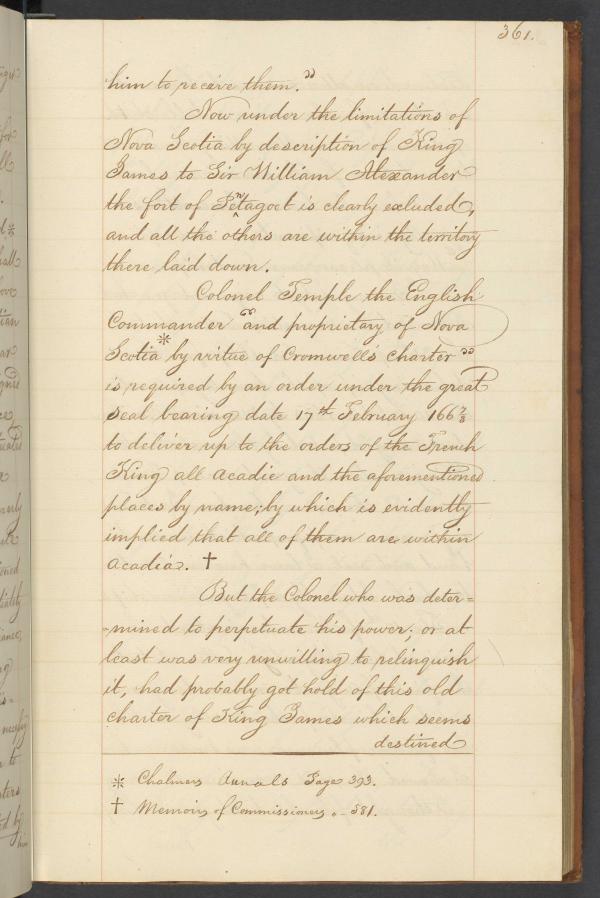 361.
him to receive them."
Now under the limitations of
Nova Scotia by description of King
James to Sir William Alexander
the fort of Pentagoet is clearly excluded,
and all the others are within the territory
there laid down.
Colonel Temple the English
Commander "and proprietary of Nova
Scotia * by virtue of Cromwell's charter"
is required by an order under the great
Seal bearing date 17th February 166 7/8
to deliver up to the orders of the French
King all Acadie and the aforementioned
places by name; by which is evidently
implied that all of them are within
Acadia. †
But the Colonel who was deter=
-mined to perpetuate his power; or at
least was very unwilling to relinquish
it, had probably got hold of this old
charter of King James which seems
destined
* Chalmers Annals Page 393.
† Memoirs of Commissioners - 581.